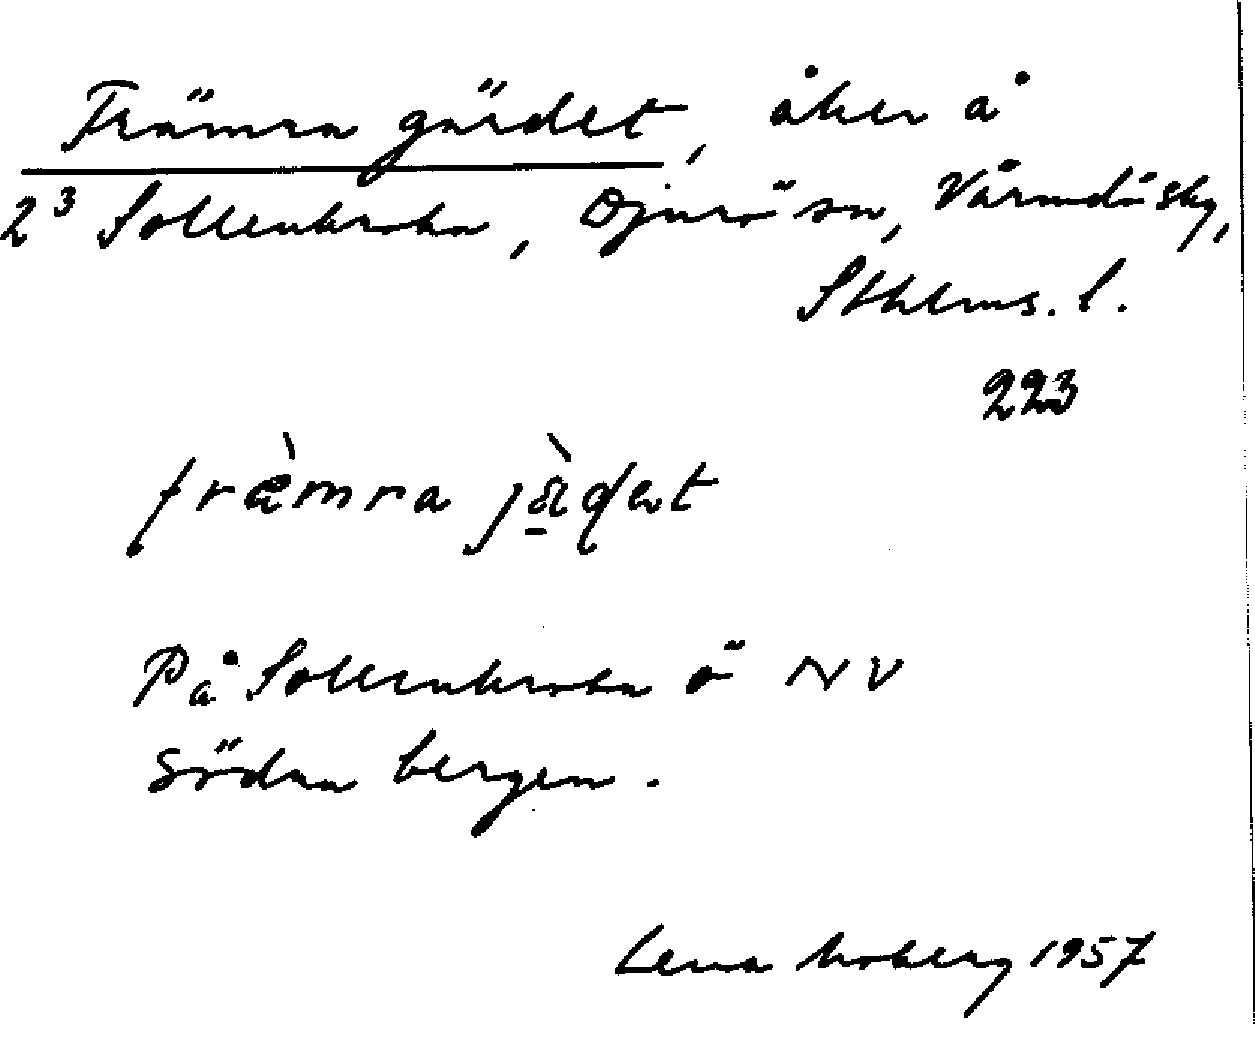 Främra gärdet, åker å
2³ Sollenkroka, Djurö sn, Värmdö sky,
Sthlms. l.
223
fræ̀mra jö̀ḍat
På Sollenkroka ö NV
Södra bergen.
Lena Moberg 1957